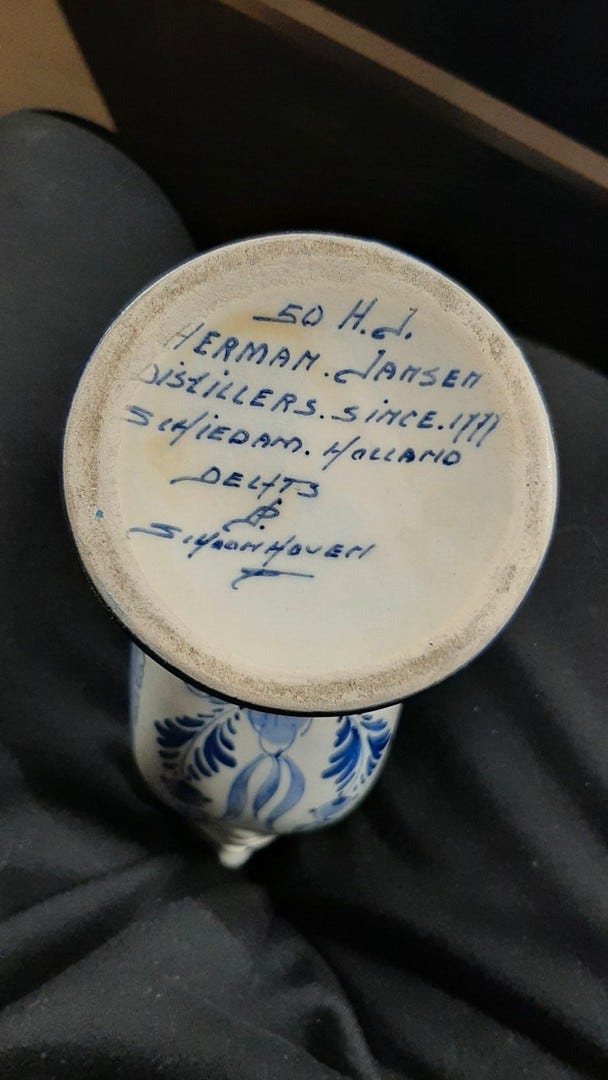 50 H.J.
HERMAN. JANSEN
DISTILLERS. SINCE. 1777
SCHIEDAM. HOLLAND
DELFTS
SCHOONHOVEN